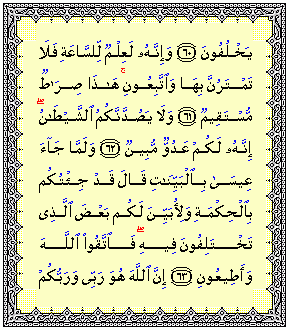 يَخْلُفُونَ ﴿٦٠﴾ وَإِنَّهُۥ لَعِلْمٌ لِّلسَّاعَةِ فَلَا
تَمْتَرُنَّ بِهَا وَٱتَّبِعُونِ ۚ هَـٰذَا صِرَٰطٌ
مُّسْتَقِيمٌ ﴿٦١﴾ وَلَا يَصُدَّنَّكُمُ ٱلشَّيْطَـٰنُ ۖ
إِنَّهُۥ لَكُمْ عَدُوٌّ مُّبِينٌ ﴿٦٢﴾ وَلَمَّا جَآءَ
عِيسَىٰ بِٱلْبَيِّنَـٰتِ قَالَ قَدْ جِئْتُكُم
بِٱلْحِكْمَةِ وَلِأُبَيِّنَ لَكُم بَعْضَ ٱلَّذِى
تَخْتَلِفُونَ فِيهِ ۖ فَٱتَّقُوا۟ ٱللَّهَ
وَأَطِيعُونِ ﴿٦٣﴾ إِنَّ ٱللَّهَ هُوَ رَبِّى وَرَبُّكُمْ